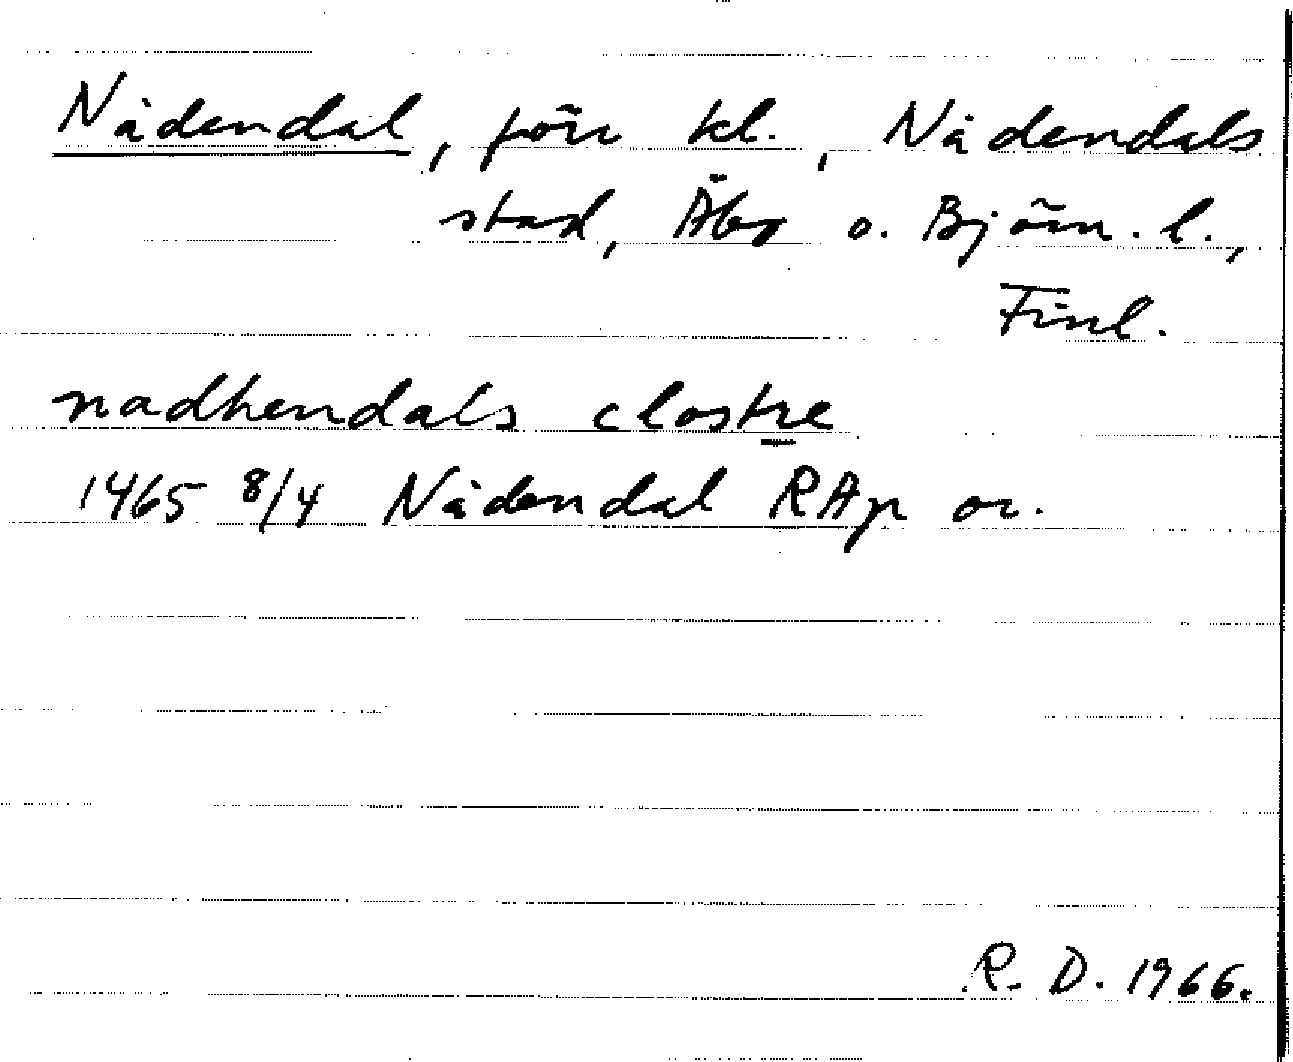 Nådendal, förr kl., Nådendals
stad, Åbo o. Björn. l.,
Finl.
nadhendals clostre
1465 8/4 Nådendal RAp or.
R. D. 1966.